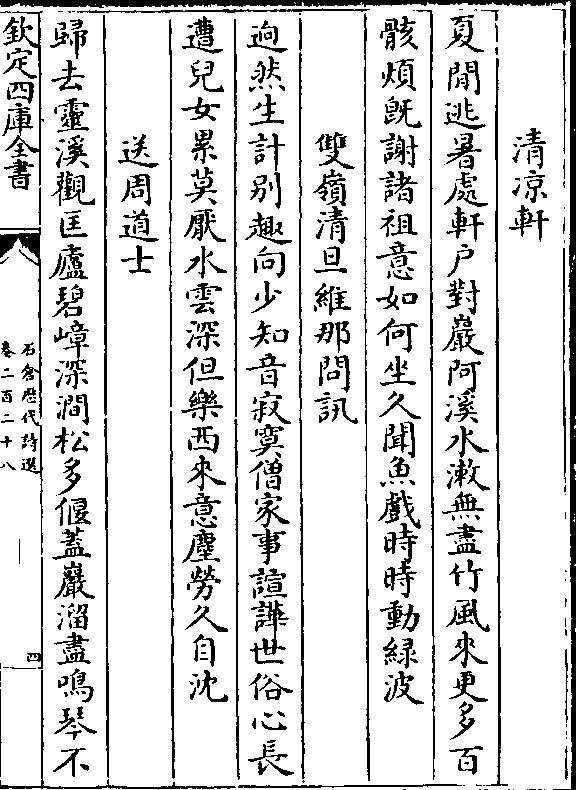 清凉軒
夏閒逃暑處軒户對巖阿溪水漱無盡竹風來更多百
骸煩旣謝諸祖意如何坐久聞魚戲時時動綠波
雙嶺清旦維那問訊
逈然生計别趣向少知音寂寞僧家事諠譁世俗心長
遭兒女累莫厭水雲深但樂西來意塵勞久自沈
送周道士
歸去靈溪觀匡廬碧嶂深澗松多偃蓋巖溜盡鳴琴不
欽定四庫全書
石倉歷代詩選
卷二百二十八
四